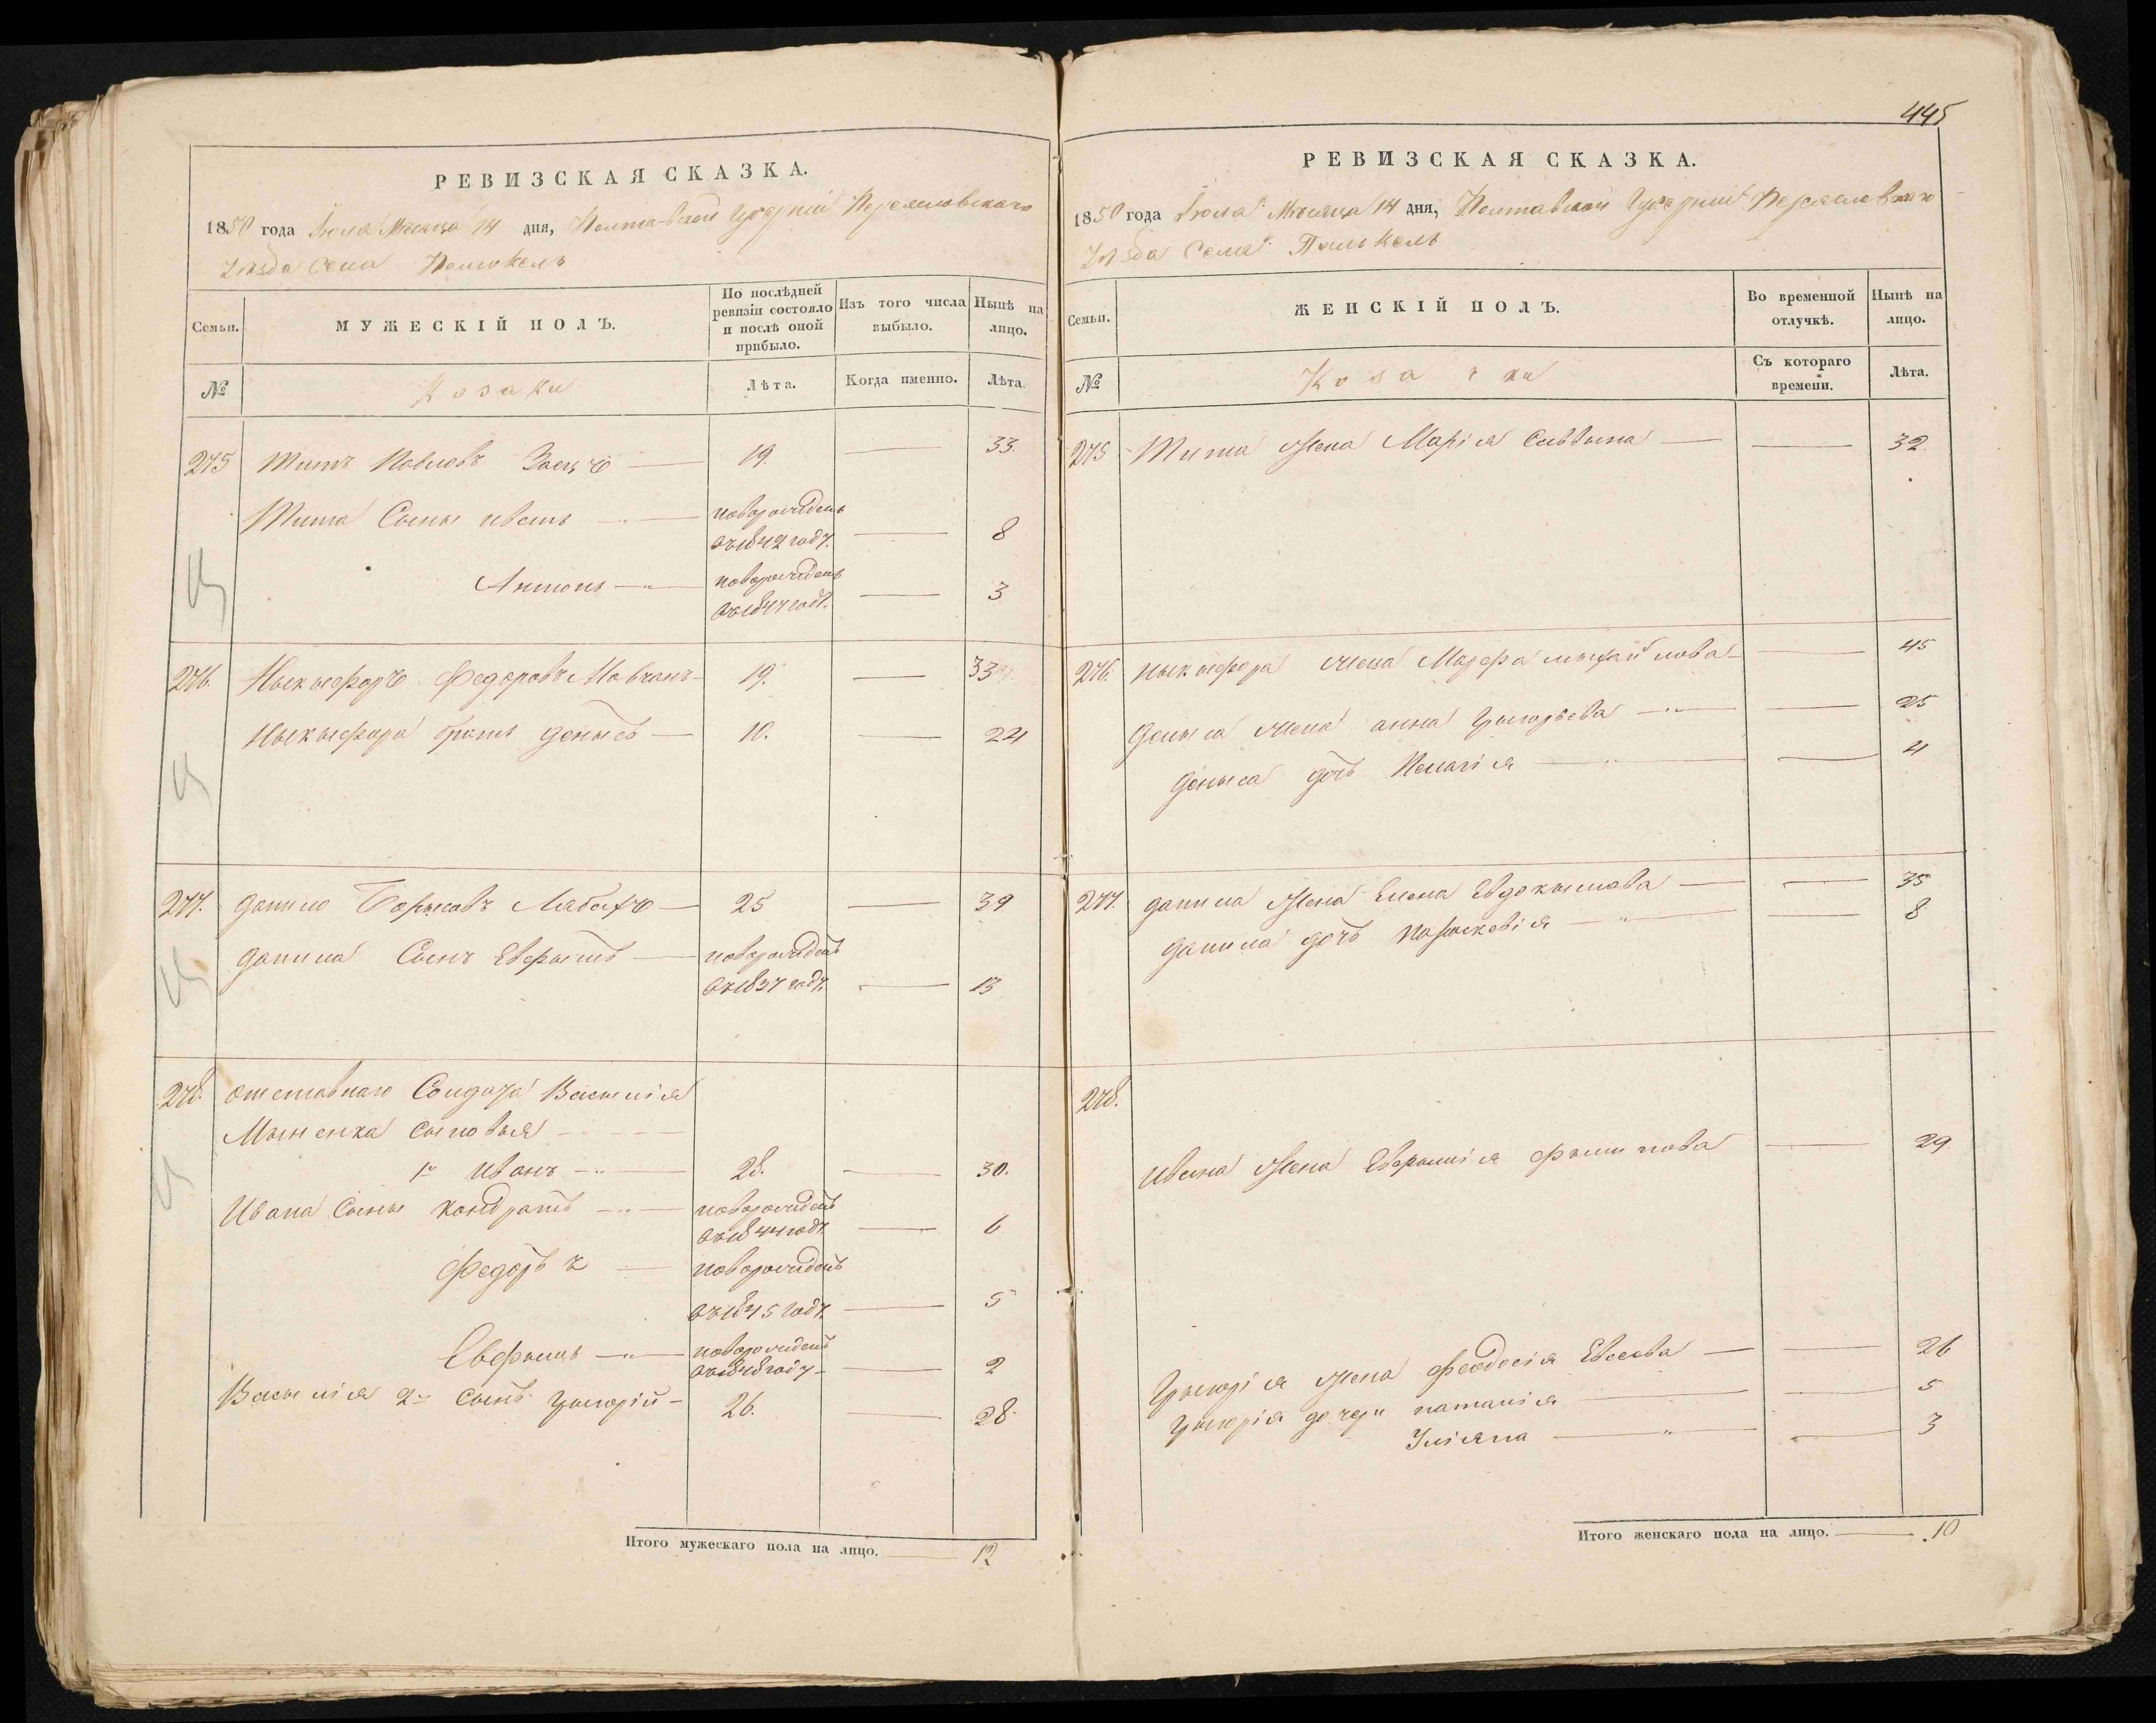 445
РЕВИЗСКАЯ СКАЗКА.
1850 года Іюля Месяца 14 дня, Полтавской Губерніи Переясловского
Уѣзда Села Помокель
Семьи.
МУЖЕСКІЙ ПОЛЪ.
По послѣдней ревизіи состояло и послѣ оной прибыло.
Изъ того числа выбыло.
Нынѣ на лицо.
№
Козаки
Лѣта.
Когда именно.
Лѣта.
275 Титъ Павловъ 19. 33.
Тита Сыны иванъ новорожденъ
въ 1842 году. 8
Антонъ новорожденъ
въ 1847 году. 3
276. Ныкыфоръ Федоровъ Мовчанъ 19. 33
Ныкыфора братъ денысъ 10. 24
277. данило Борысовъ 25 39
данила Сынъ Евфымъ новорожденъ
въ 1837 году. 13
278. отставнаго Солдата Васылія
сыновья
1й Иванъ 28. 30.
Ивана Сыны кондратъ новорожденъ
въ 1844 году. 6
Федоръ новорожденъ
въ 1845 году. 5
Евфымъ новорожденъ
въ 1848 году 2
Васылія 2й сынъ Грыгорій 26. 28.
Итого мужескаго пола на лицо. 12
РЕВИЗСКАЯ СКАЗКА.
1850 года Іюля Мѣсяца 14 дня, Полтавской Губерніи Переясловского
Уѣзда Села Помокель
Семьи.
ЖЕНСКІЙ ПОЛЪ.
Во временной отлучкѣ.
Нынѣ на лицо.
№
Козачки
Съ котораго времени.
Лѣта.
275 Тита жена Марія Саввына 32.
276. Ныкыфора жена Марфа мыхайлова 45
Деныса жена анна Грыгорьева 25
Деныса дочь Пелагія 4
277. данила жена Елена Евдокымова 35
данила дочь парыскевія 8
278.
Ивана жена Евфымія Фылипова 29.
Грыгорія жена Феодосія Евсеева 26
Грыгорія дочери наталія 5
Уліяна 3
Итого женскаго пола на лицо. 10